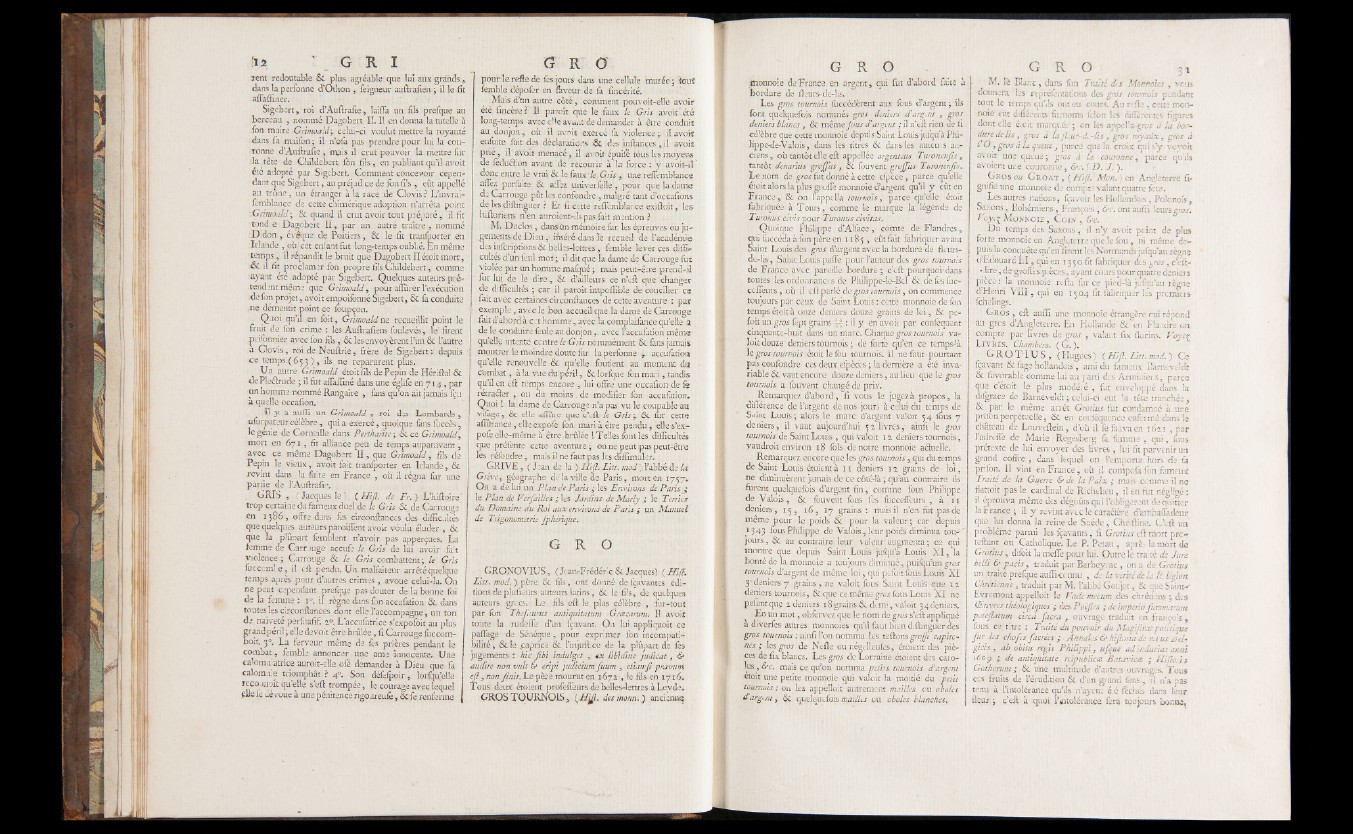 12 G R I
rent redoutable & plus agréable que lui aux grands,
dans la personne d'Othon, seigneur austrasien ; il le fit
assassiner.
Sigebert, roi d'Austrasie, laissa un fils presque au
berceau, nommé Dagobert II. Il en donna la tutelle à
son maire Grimoald ; celui-ci voulut mettre la royauté
dans sa maison ; il n'osa pas prendre pour lui la cou-
ronne d'Austrasie, mais il crut pouvoir la mettre sur
la tête de Childebert son fils, en publiant qu'il avoit
été adopté par Sigebert. Comment concevoir cepen-
dant que Sigebert, au préjudice de son fils, eût appellé
au trône, un étranger à la race de Clovis ? L'invrai-
semblance de cette chimérique adoption n'arrêta point
Grimoald ; & quand il crut avoir tout préparé, il fit
tondre Dagobert II, par un autre traître, nommé
Didon, évêque de Poitiers, & le fit transporter en
Irlande, où cet enfant fut long-temps oublié. En même
temps, il répandit le bruit que Dagobert II étoit mort,
& il fit proclamer son propre fils Childebert, comme
ayant été adopté par Sigebert. Quelques auteurs pré-
tendent même que Grimoald, pour assurer l'exécution
de son projet, avoit empoisonné Sigebert, & sa conduite
ne dément point ce soupçon.
Quoi qu'il en soit, Grimoald ne recueillit point le
fruit de son crime : les Austrasiens soulevés, le firent
prisonnier avec son fils, & les envoyèrent l'un & l'autre
à Clovis, roi de Neustrie, frère de Sigebert : depuis
ce temps (653), ils ne reparurent plus.
Un autre Grimoald étoit fils de Pepin de Héristal &
de Plectrude ; il fut assassiné dans une église en 714, par
un homme nommé Rangaire, sans qu'on ait jamais sçu
à quelle occasion.
Il y a aussi un Grimoald, roi des Lombards,
usurpateur célèbre, qui a exercé, quoique sans succès,
le génie de Corneille dans Pertharite ; & ce Grimoald,
mort en 671, fit alliance peu de temps auparavant,
avec ce même Dagobert II, que Grimoald, fils de
Pepin le vieux, avoit fait transporter en Irlande, &
revint dans la suite en France, où il régna sur une
partie de l'Austrasie.
GRIS, (Jacques le) (Hist. de Fr.) L'histoire
trop certaine du fameux duel de le Gris & de Carrouge
en 1386, offre dans ses circonstances des difficultés
que quelques auteurs paroissent avoir voulu éluder, &
que la plûpart semblent n'avoir pas apperçues. La
femme de Carrouge accuse le Gris de lui avoir fait
violence ; Carrouge & le Gris combattent ; le Gris
succombe, il est pendu. Un malfaiteur arrêté quelque
temps après pour d'autres crimes, avoue celui-là. On
ne peut cependant presque pas douter de la bonne foi
de la femme : 1°. il règne dans son accusation & dans
toutes les circonstances dont elle l'accompagne, un ton
de naïveté persuasif. 2°. L'accusatrice s'exposoit au plus
grand péril ; elle devoit être brûlée, si Carrouge succom-
boit. 3°. La ferveur même de ses prières pendant le
combat, semble annoncer une ame innocente. Une
calomniatrice auroit-elle osé demander à Dieu que la
calomnie triomphât ? 4°. Son désespoir, lorsqu'elle
reconnoît qu'elle s'est trompée, le courage avec lequel
elle se dévoue à une pénitence rigoureuse, & se renferme
G R O
pour le reste de ses jours dans une cellule murée ; tout
semble déposer en faveur de sa sincérité.
Mais d'un autre côté, comment pouvoit-elle avoir
été sincère ? Il paroît que le faux le Gris avoit été
long-temps avec elle avant de demander à être conduit
au donjon, où il avoit exercé sa violence ; il avoit
ensuite fait des déclarations & des instances, il avoit
prié, il avoit menacé, il avoit épuisé tous les moyens
de séduction avant de recourir à la force : y avoit-il
donc entre le vrai & le faux le Gris, une ressemblance
assez parfaite & assez universelle, pour que la dame
de Carrouge pût les confondre, malgré tant d'occasions
de les distinguer ? Et si cette ressemblance existoit, les
historiens n'en auroient-ils pas fait mention ?
M. Duclos, dans un mémoire sur les épreuves ou ju-
gements de Dieu, inséré dans le recueil de l'académie
des inscriptions & belles-lettres, semble lever ces diffi-
cultés d'un seul mot ; il dit que la dame de Carrouge fut
violée par un homme masqué ; mais peut-être prend-il
sur lui de le dire, & d'ailleurs ce n'est que changer
de difficultés ; car il paroît impossible de concilier ce
fait avec certaines circonstances de cette aventure : par
exemple, avec le bon accueil que la dame de Carrouge
fait d'abord à cet homme, avec la complaisance qu'elle a
de le conduire seule au donjon, avec l'accusation même
qu'elle intente contre le Gris nommément & sans jamais
montrer le moindre doute sur la personne, accusation
qu'elle renouvelle & qu'elle soutient au moment du
combat, à la vue du péril, & lorsque son mari, tandis
qu'il en est temps encore, lui offre une occasion de se
rétracter, ou du moins de modifier son accusation.
Quoi ! la dame de Carrouge n'a pas vu le coupable au
visage, & elle assure que c'est le Gris ; & sur cette
assurance, elle expose son mari à être pendu, elle s'ex-
pose elle-même à être brûlée ! Telles sont les difficultés
que présente cette aventure ; on ne peut pas peut-être
les résoudre, mais il ne faut pas les dissimuler.
GRIVE, (Jean de la) Hist. Litt. mod.) l'abbé de la
Grive, géographe de la ville de Paris, mort en 1757.
On a de lui un Plan de Paris ; les Environs de Paris ;
le Plan de Versailles ; les Jardins de Marly ; le Terrier
du Domaine du Roi aux environs de Paris ; un Manuel
de Trigonométrie sphérique.
G R O
GRONOVIUS, (Jean-Frédéric & Jacques) (Hist.
Litt. mod.) père & fils, ont donné de sçavantes édi-
tions de plusieurs auteurs latins, & le fils, de quelques
auteurs grecs. Le fils est le plus célèbre, sur-tout
par son Thesaurus antiquitatum Græcarum. Il avoit
toute la rudesse d'un sçavant. On lui appliquoit ce
passage de Sénèque, pour exprimer son incompati-
bilité, & le caprice & l'injustice de la plûpart de ses
jugements : hic sibi indulget, ex libidine judicat, &
audire non vult & eripi judicium suum, etiamsi pravum
est, non sinit. Le père mourut en 1672, le fils en 1716.
Tous deux étoient professeurs de belles-lettres à Leyde.
GROS TOURNOIS, (Hist. des monn.) ancienne
G R O
monnoie de France en argent, qui fut d'abord faite à
bordure de fleurs-de-lis.
Les gros tournois succédèrent aux sous d'argent, ils
sont quelquefois nommés gros deniers d'argent, gros
deniers blancs, & même sous d'argent ; il n'est rien de si
célèbre que cette monnoie depuis Saint Louis jusqu'à Phi-
lippe-de-Valois, dans les titres & dans les auteurs an-
ciens, où tantôt elle est appellée argenteus Turonensis,
tantôt denarius grossus, & souvent grossus Turonensis.
Le nom de gros fut donné à cette espèce, parce qu'elle
étoit alors la plus grosse monnoie d'argent qu'il y eût en
France, & on l'appella tournois, parce qu'elle étoit
fabriquée à Tours, comme le marque la légende de
Turonus civis pour Turonus civitas.
Quoique Philippe d'Alsace, comte de Flandres,
qui succéda à son père en 1185, eût fait fabriquer avant
Saint Louis des gros d'argent avec la bordure de fleurs-
de-lis, Saint Louis passe pour l'auteur des gros tournois
de France avec pareille bordure ; c'est pourquoi dans
toutes les ordonnances de Philippe-le-Bel & de ses suc-
cesseurs, où il est parlé de gros tournois, on commence
toujours par ceux de Saint Louis : cette monnoie de son
temps étoit à onze deniers douze grains de loi, & pe-
soit un gros sept grains : il y en avoit par conséquent
cinquante-huit dans un marc. Chaque gros tournois va-
loit douze deniers tournois ; de sorte qu'en ce temps-là
le gros tournois étoit le sou tournois. Il ne faut pourtant
pas confondre ces deux espèces ; la dernière a été inva-
riable & vaut encore douze deniers, au lieu que le gros
tournois a souvent changé de prix.
Remarquez d'abord, si vous le jugez à propos, la
différence de l'argent de nos jours à celui du temps de
Saint Louis ; alors le marc d'argent valoit 54 sous 7
deniers, il vaut aujourd'hui 52 livres, ainsi le gros
tournois de Saint Louis, qui valoit 12 deniers tournois,
vaudroit environ 18 sols de notre monnoie actuelle.
Remarquez encore que les gros tournois, qui du temps
de Saint Louis étoient à 11 deniers 12 grains de loi,
ne diminuèrent jamais de ce côté-là ; qu'au contraire ils
furent quelquefois d'argent fin, comme sous Philippe
de Valois, & souvent sous ses successeurs, à 11
deniers, 15, 16, 17 grains : mais il n'en fut pas de
même pour le poids & pour la valeur ; car depuis
1343 sous Philippe de Valois, leur poids diminua tou-
jours, & au contraire leur valeur augmenta ; ce qui
montre que depuis Saint Louis jusqu'à Louis XI, la
bonté de la monnoie a toujours diminué, puisqu'un gros
tournois d'argent de même loi, qui pesoit sous Louis XI
3 deniers 7 grains, ne valoit sous Saint Louis que 12
deniers tournois, & que ce même gros sous Louis XI ne
pesant que 2 deniers 18 grains & demi, valoit 34 deniers.
En un mot, observez que le nom de gros s'est appliqué
à diverses autres monnoies qu'il faut bien distinguer des
gros tournois : ainsi l'on nomma les testons grossi capito-
nes ; les gros de Nesle ou négellenses, étoient des piè-
ces de six blancs. Les gros de Lorraine étoient des caro-
lus, &c. mais ce qu'on nomma petits tournois d'argent
étoit une petite monnoie qui valoit la moitié du petit
tournois ; on les appelloit autrement mailles ou oboles
d'argent, & quelquefois mailles ou oboles blanches.
G R O 31
M. le Blanc, dans son Traité des Monnoies, vous
donnera les représentations des gros tournois pendant
tout le temps qu'ils ont eu cours. Au reste, cette mon-
noie eut différents surnoms selon les différentes figures
dont elle étoit marquée ; on les appella gros à la bor-
dure de lis, gros à la fleur-de-lis, gros royaux, gros à
l'O, gros à la queue, parce que la croix qui s'y voyoit
avoit une queue ; gros à la couronne, parce qu'ils
avoient une couronne, &c. (D. J.).
GROS ou GROAT, (Hist. Mon.) en Angleterre si-
gnifie une monnoie de compte valant quatre sous.
Les autres nations, sçavoir les Hollandois, Polonois,
Saxons, Bohémiens, François, &c. ont aussi leurs gros.
Voyez MONNOIE, COIN, &c.
Du temps des Saxons, il n'y avoit point de plus
forte monnoie en Angleterre que le sou, ni même de-
puis la conquête qu'en firent les Normands jusqu'au règne
d'Edouard III, qui en 1350 fit fabriquer des gros, c'est-
à-dire, de grosses pièces, ayant cours pour quatre deniers
pièce : la monnoie resta sur ce pied-là jusqu'au règne
d'Henri VIII, qui en 1504 fit fabriquer les premiers
schelings.
GROS, est aussi une monnoie étrangère qui répond
au gros d'Angleterre. En Hollande & en Flandre on
compte par livres de gros, valant six florins. Voyez
LIVRES. Chambers. (G.).
GROTIUS, (Hugues) (Hist. Litt. mod.) Ce
sçavant & sage hollandois, ami du fameux Barneveldt
& favorable comme lui au parti des Arminiens, parce
que c'étoit le plus modéré, fut enveloppé dans la
disgrace de Barneveldt ; celui-ci eut la tête tranchée,
& par le même arrêt Grotius fut condamné à une
prison perpétuelle, & en conséquence enfermé dans le
château de Louvestein, d'où il se sauva en 1621, par
l'adresse de Marie Regesberg sa femme, qui, sous
prétexte de lui envoyer des livres, lui fit parvenir un
grand coffre, dans lequel on l'emporta hors de sa
prison. Il vint en France, où il composa son fameux
Traité de la Guerre & de la Paix ; mais comme il ne
flattoit pas le cardinal de Richelieu, il en fut négligé :
il éprouva même des dégoûts qui l'obligèrent de quitter
la France ; il y revint avec le caractère d'ambassadeur
que lui donna la reine de Suède, Christine. C'est un
problème parmi les sçavants, si Grotius est mort pro-
testant ou Catholique. Le P. Petau, après la mort de
Grotius, disoit la messe pour lui. Outre le traité de Jure
belli & pacis, traduit par Barbeyrac, on a de Grotius
un traité presque aussi connu, de la vérité de la Religion
Chrétienne, traduit par M. l'abbé Goujet, & que Saint-
Evremont appelloit le Vade mecum des chrétiens ; des
Œuvres théologiques ; des Poésies ; de imperio summarum
potestatum circà sacra, ouvrage traduit en françois,
sous ce titre : Traité du pouvoir du Magistrat politique
sur les choses sacrées ; Annales & historia de rebus Bel-
gicis, ab obitu regis Philippi, usque ad inducias anni
1609 ; de antiquitate reipublicæ Batavicæ ; Historia
Gothorum ; & une multitude d'autres ouvrages. Tous
ces fruits de l'érudition & d'un grand sens, il n'a pas
tenu à l'intolérance qu'ils n'ayent été séchés dans leur
fleur ; c'est à quoi l'intolérance sera toujours bonne,